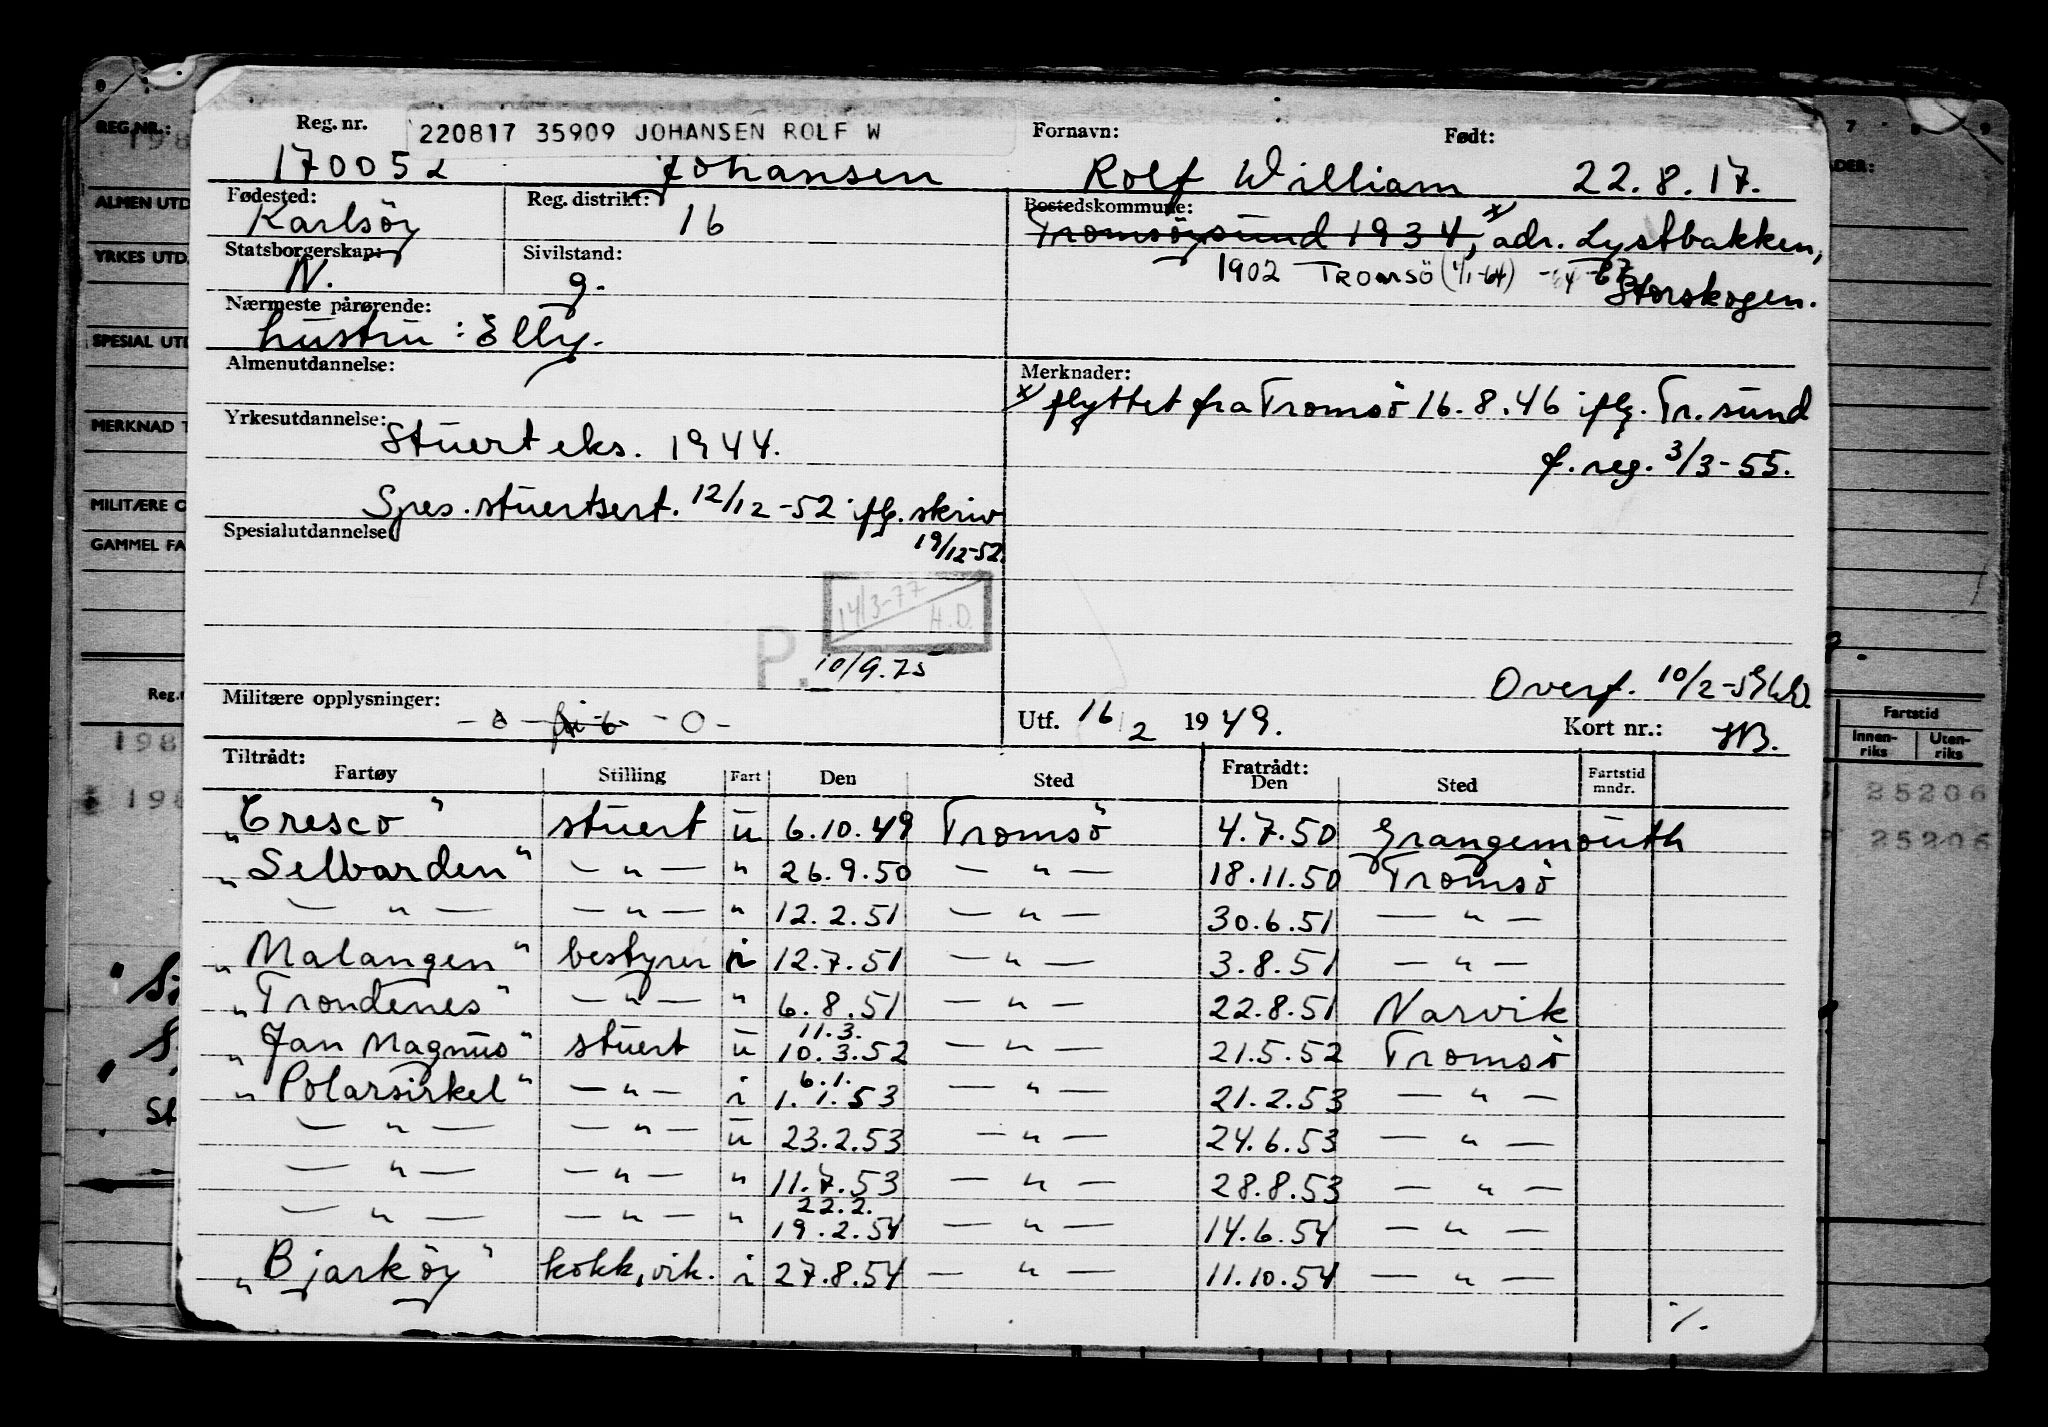 Reg. nr. 220817 35909 JOHANSEN ROLF W Fornavn: Født:
170052 Johansen Rolf William 22.8.17.
Fødested: Reg. distrikt: Bostedskommune:
Karlsöy 16 Tromsöysund 1934, x/ adr. Lystbakken,
Statsborgerskap: Sivilstand: 1902 TROMSÖ (4/1-64)
N. g. Storskogen.
Nærmeste pårørende:
hustru: Elly.
Almenutdannelse: Merknader:
x/ flyttet fra Tromsö 16.8.46 iflg. Tr. sund
Yrkesutdannelse:
Stuert eks. 1944. f. reg. 3/3-55.
Spes. stuertsert. 12/12-52 iflg. skriv
Spesialutdannelse 19/12-52.
14/3-77 H.D.
P. 10/9.75
Overf. 10/2-59
Militære opplysninger: Utf. 16/2 1949. Kort nr.: HB.
- 0 -
Tiltrådt: Fratrådt:
Fartøy Stilling Fart Den Sted Den Sted Fartstid mndr.
"Cresco" stuert u 6.10.49 Tromsö 4.7.50 Grangemouth
"Selbarden" — " — " 26.9.50 — " — 18.11.50 Tromsö
— " — — " — " 12.2.51 — " — 30.6.51 — " —
"Malangen" bestyrer i 12.7.51 — " — 3.8.51 — " —
"Trondenes" — " — " 6.8.51 — " — 22.8.51 Narvik
11.3.
"Jan Magnus" stuert u 10.3.52 — " — 21.5.52 Tromsö
6.1.
"Polarsirkel" — " — i 1.1.53 — " — 21.2.53 — " —
— " — — " — u 23.2.53 — " — 24.6.53 — " —
— " — — " — " 11.7.53 — " — 28.8.53 — " —
22.2.
— " — — " — " 19.2.54 — " — 14.6.54 — " —
"Bjarköy" kokk, vik. i 27.8.54 — " — 11.10.54 — " —
•/.
REG.NR.:
198
ALMEN UTD
YRKES UTD
SPESIAL UTD
MERKNAD T
MILITÆRE O
GAMMEL FA
Reg.n
198
198
7 8 9
ADER:
Fartstid
Innen-riks Uten-riks
25206
25206